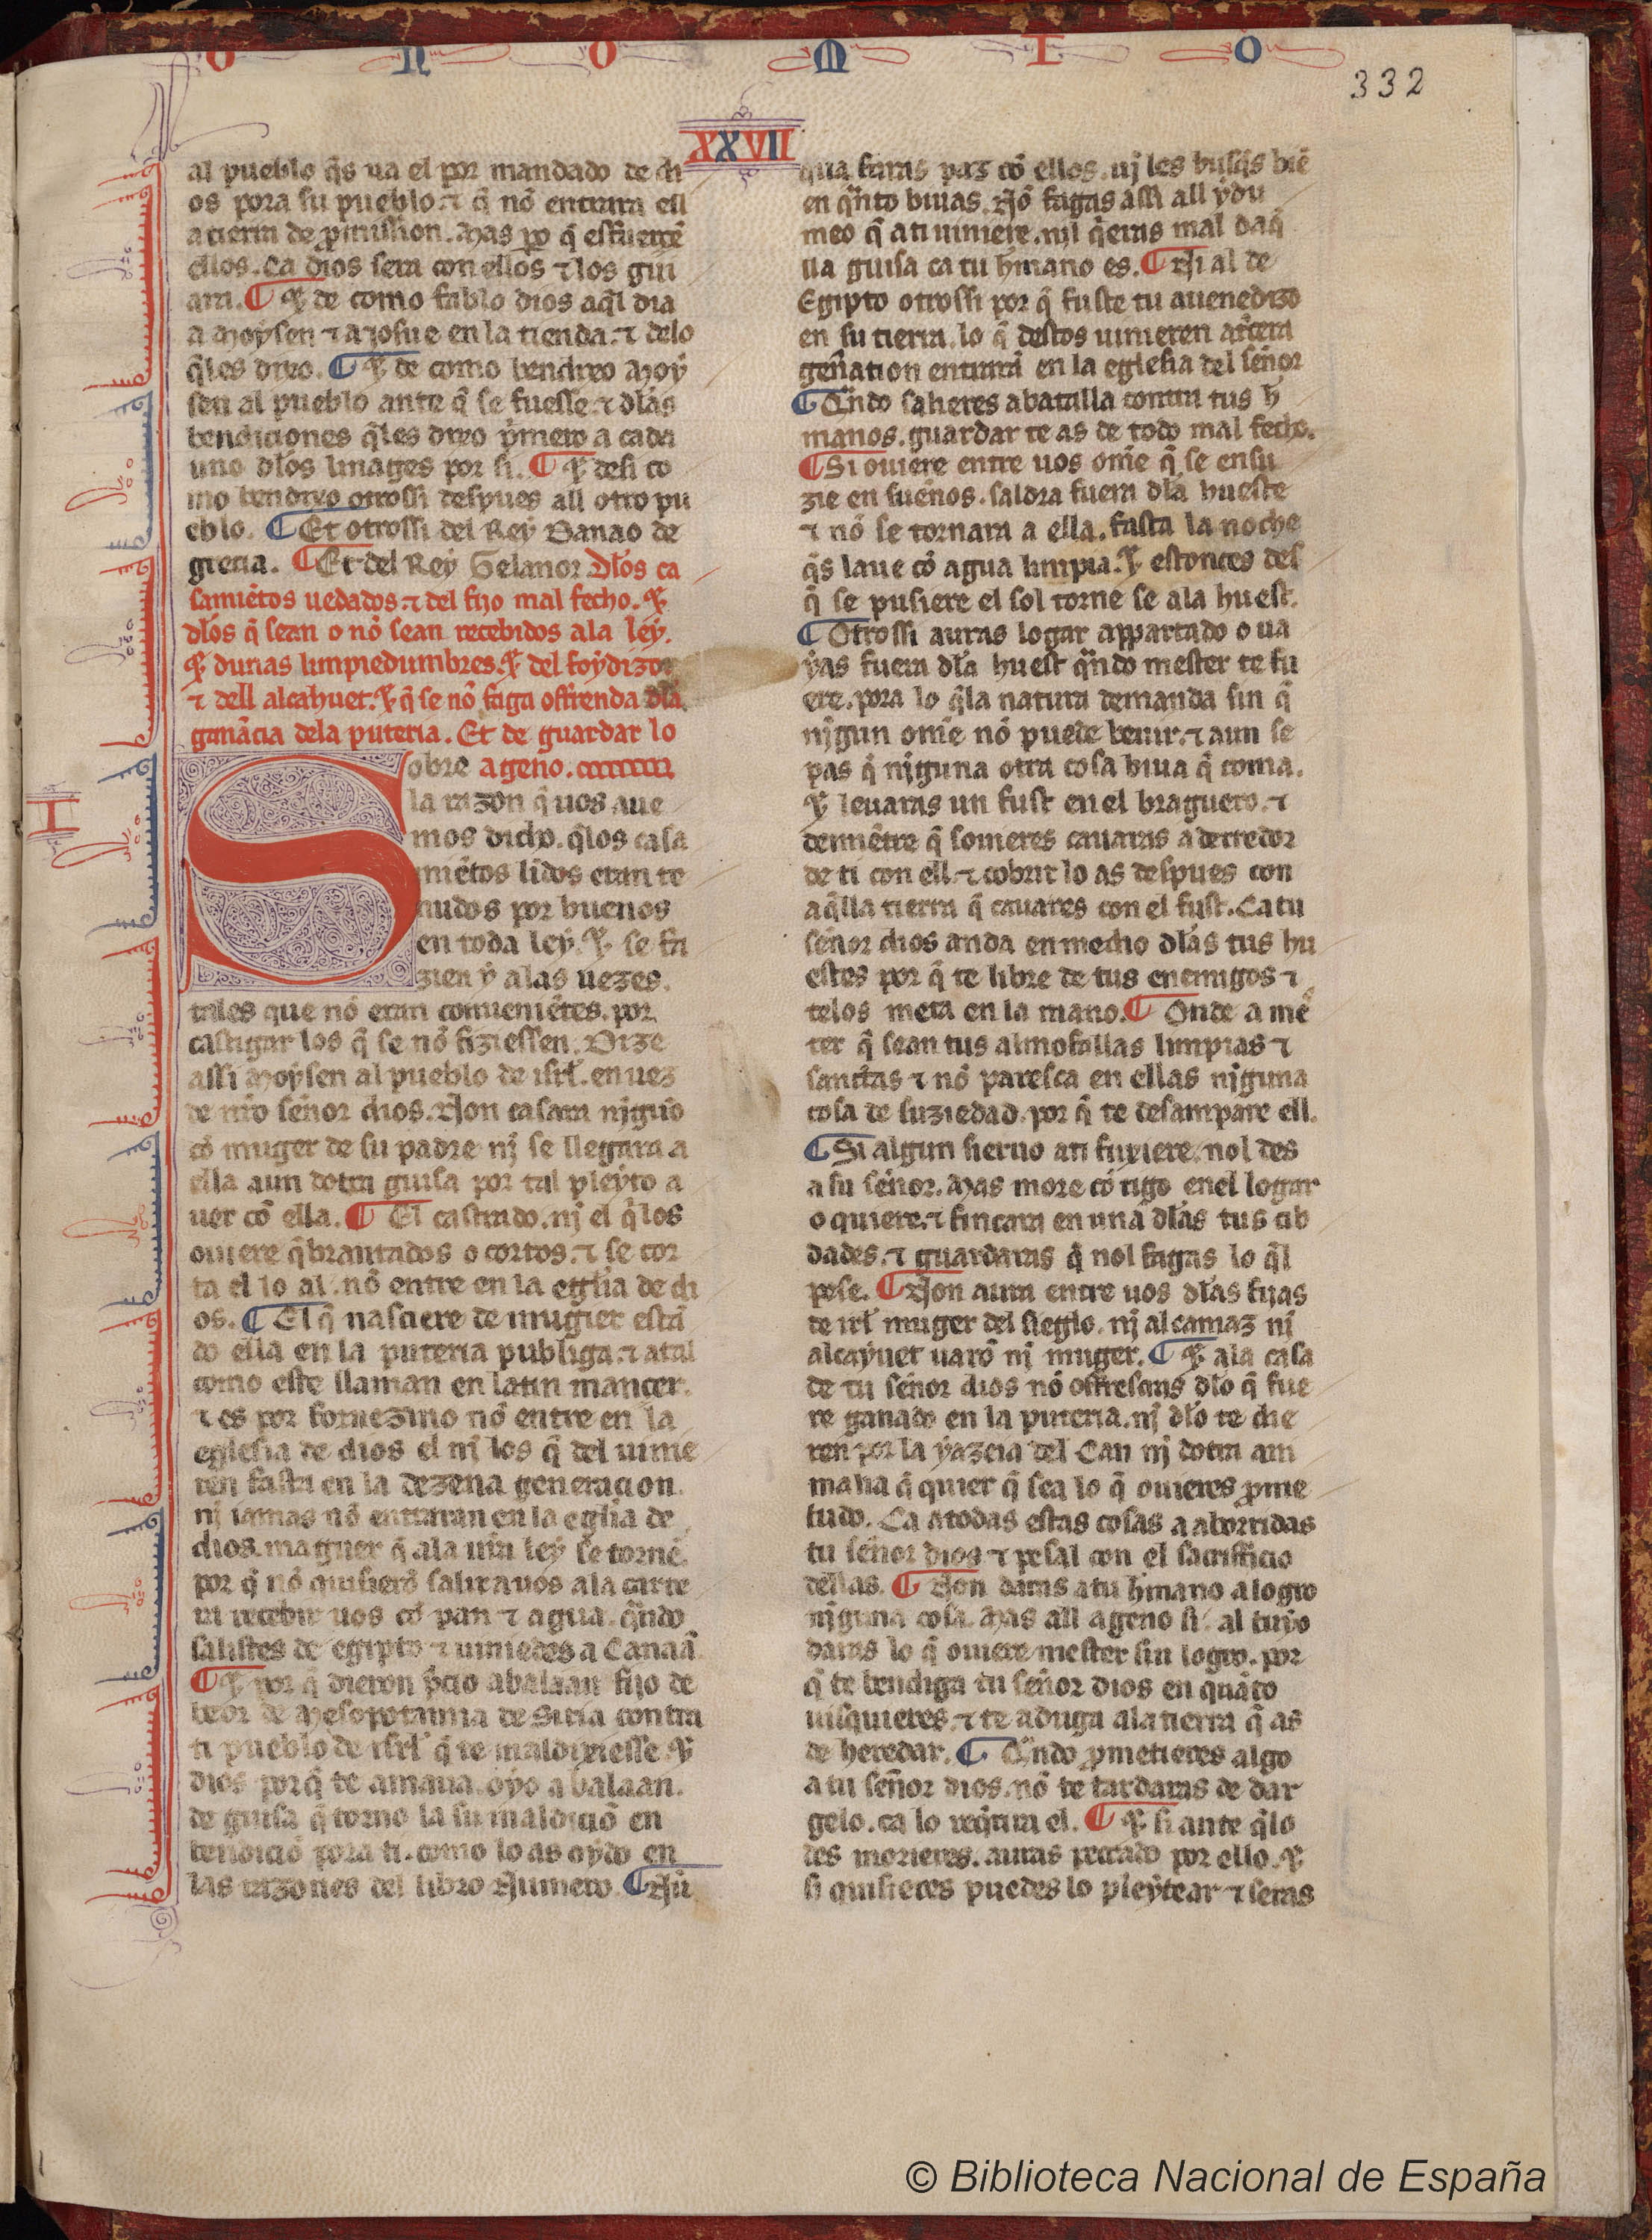 O N O M I O
332
XXVII
al pueblo q̃s ua el por mandado de di
os pora su pueblo. ⁊ q̃ nõ entrara ell
a tierra de p̃mission. Mas po q̃ esfuerce
ellos. Ca dios sera con ellos ⁊ los gui
ara. ¶ ⁊ de como fablo dios aq̃l dia
a Moysen ⁊ a Josue en la tienda. ⁊ delo
q̃les dixo. ¶ ⁊ de como bendixo Moy
sen al pueblo ante q̃ se fuesse. ⁊ dlas
bendiciones q̃les dixo p̃mero a cada
uno dlos linages por si. ¶ ⁊ desi co
mo bendixo otrossi despues all otro pu
eblo. ¶ Et otrossi del Rey Danao de
grecia. ¶ Et del Rey Gelanor Dlos ca
samiẽtos uedados. ⁊ del fijo mal fecho. ⁊
dlos q̃ sean o nõ sean recebidos ala ley.
⁊ dunas limpiedumbres. ⁊ del foydizo.
⁊ dell alcahuet. ⁊ q̃ se nõ faga offrenda dla
ganãcia dela puteria. Et de guardar lo
Sobre ageno.
la razon q̃ uos aue
mos dicho. q̃los casa
miẽtos lidos eran te
nudos por buenos
en toda ley. ⁊ se fa
zien y alas uezes.
tales que nõ eran conueniẽtes. por
castigar los q̃ se nõ fiziessen. Dize
assi Moysen al pueblo de isrl̃. en uez
de nr̃o señor dios. Non casara nĩguo
cõ muger de su padre nj̃ se llegara a
ella aun dotra guisa por tal pleyto a
uer cõ ella. ¶ El castrado. nj̃ el q̃los
ouiere q̃brantados o cortos. ⁊ se cor
ta el lo al. nõ entre en la eglia de di
os. ¶ El q̃ nasciere de mugier estã
do ella en la puteria publiga. ⁊ atal
como este llaman en latin mancer.
⁊ es por fornezino nõ entre en la
eglesia de dios el nj̃ los q̃ del uinie
ren fasta en la dezena generacion.
nj̃ iamas nõ entraran en la eglia de
dios. maguer q̃ ala ur̃a ley se tornẽ.
por q̃ nõ quisierõ salir a uos ala carre
ra recebir uos cõ pan ⁊ agua. q̃ndo
saliestes de egipto ⁊ uiniedes a Canaã.
¶ ⁊ por q̃ dieron p̃cio a balaan fijo de
beor de Mesopotamia de Siria contra
ti pueblo de isrl̃ q̃ te maldixiesse. ⁊
dios porq̃ te amaua. oyo a balaan.
de guisa q̃ torno la su maldiciõ en
bendiciõ pora ti. como lo as oydo en
las razones del libro Numero. ¶ Nũ
qua faras paz cõ ellos. nj̃ les busq̃s biẽ
en q̃nto biuas. Nõ fagas assi all ydu
meo q̃ a ti uiniere. nil q̃eras mal daq̃
lla guisa ca tu hmano es. ¶ Ni al de
Egipto otrossi por q̃ fuste tu auenedizo
en su tierra. lo q̃ destos uinieren a t̃cera
geñation entrarã en la eglesia del señor
¶ Q̃ndo salieres a batalla contra tus h̃
manos. guardar te as de todo mal fecho.
¶ Si ouiere entre uos om̃e q̃ se ensu
zie en sueños. saldra fuera dla hueste
⁊ nõ se tornara a ella. fasta la noche
q̃s laue cõ agua limpia. ⁊ estonces des
q̃ se pusiere el sol torne se ala huest.
¶ Otrossi auras logar appartado o ua
yas fuera dla huest q̃ndo mester te fu
ere. pora lo q̃la natura demanda sin q̃
nĩgun om̃e nõ puede beuir. ⁊ aun se
pas q̃ nĩguna otra cosa biua q̃ coma.
⁊ leuaras un fust en el braguero. ⁊
demiẽtre q̃ souieres cauaras a derredor
de ti con ell. ⁊ cobrir lo as despues con
aq̃lla tierra q̃ cauares con el fust. Ca tu
señor dios anda en medio dlas tus hu
estes por q̃ te libre de tus enemigos ⁊
telos meta en la mano. ¶ Onde a mẽ
ter q̃ sean tus almofallas limpias ⁊
sanctas ⁊ nõ paresca en ellas nĩguna
cosa de suziedad. por q̃ te desampare ell.
¶ Si algun sieruo a ti fuxiere. nol des
a su señor. Mas more cõtigo enel logar
o quiere. ⁊ fincara en una dlas tus cib
dades. ⁊ guardaras q̃ nol fagas lo q̃l
pese. ¶ Non aura entre uos dlas fijas
de irl̃ muger del sieglo. nj̃ alcamaz nj̃
alcayuet uarõ nj̃ muger. ¶ ⁊ ala casa
de tu señor dios nõ offrescas dlo q̃ fue
re ganado en la puteria. nj̃ dlo te die
ren por la yazeia del Can nj̃ dotra ani
malia q̃ quier q̃ sea lo q̃ ouieres p̃me
tudo. Ca a todas estas cosas a aborridas
tu señor dios ⁊ pesal con el sacrifficio
dellas. ¶ Non daras a tu h̃mano a logro
nĩguna cosa. Mas all ageno si. al tuyo
daras lo q̃ ouiere mester sin logro. por
q̃ te bendiga tu señor dios en quãto
uisquieres. ⁊ te aduga ala tierra q̃ as
de heredar. ¶ Q̃ndo p̃metieres algo
a tu señor dios. nõ te tardaras de dar
gelo. ca lo req̃rira el. ¶ ⁊ si ante q̃lo
des morieres. auras peccado por ello. ⁊
si quisieres puedes lo pleytear ⁊ seras
© Biblioteca Nacional de España